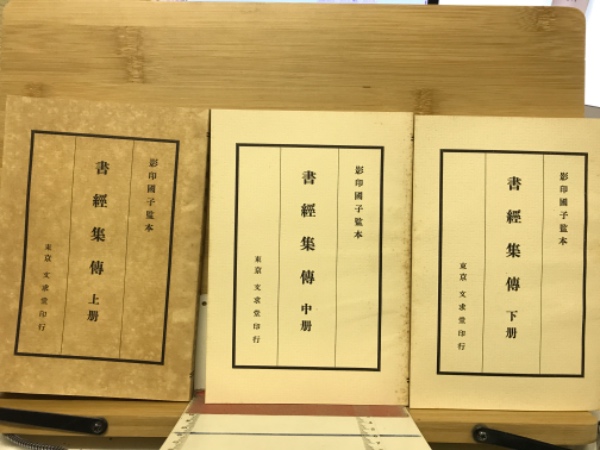 影印國子監本
書經集傳 上册
東京 文求堂印行
影印國子監本
書經集傳 中册
東京 文求堂印行
影印國子監本
書經集傳 下册
東京 文求堂印行